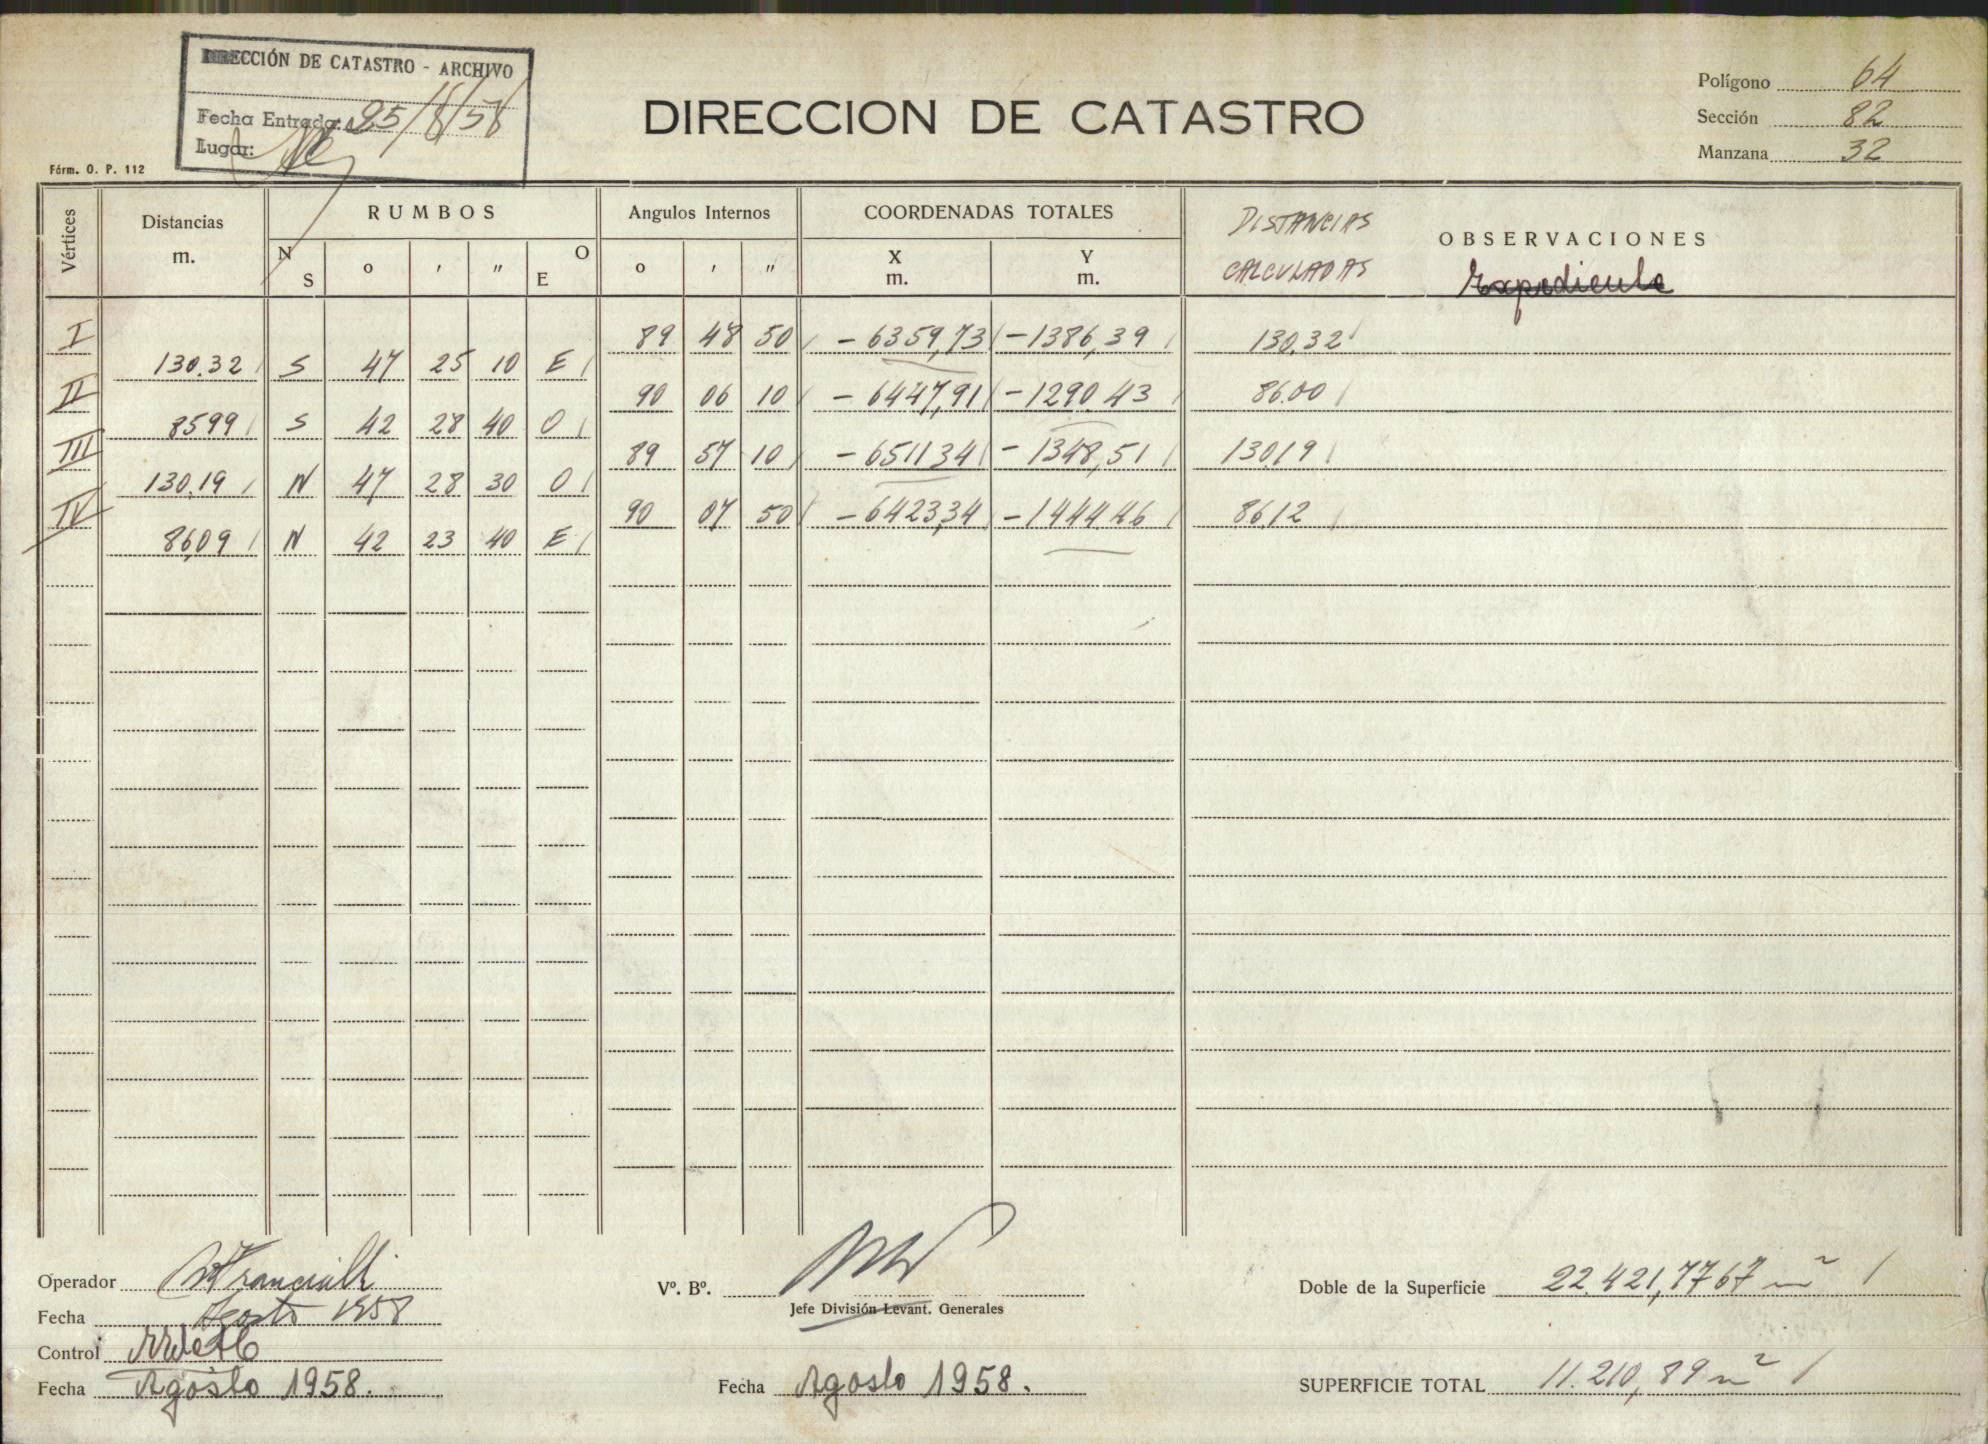 DIRECCIÓN DE CATASTRO - ARCHIVO
Fecha Entrada: 25/8/58
Lugar:
Fórm. O. P. 112
DIRECCION DE CATASTRO
Polígono 64
Sección 82
Manzana 32
Vértices Distancias m. RUMBOS Angulos Internos COORDENADAS TOTALES DISTANCIAS CALCULADAS OBSERVACIONES
N S o ' " O E o ' " X m. Y m. Expediente
I 89 48 50 -6359,73 -1386,39 130.32
130.32 S 47 25 10 E
II 90 06 10 -6447,91 -1290.43 86.00
8599 S 42 28 40 O
III 89 57 10 -651134 -1348,51 130,19
130.19 N 47 28 30 O
IV 90 07 50 -6423,34 -144446 86,12
86,09 N 42 23 40 E
Operador
Fecha Agosto 1958
Control
Fecha Agosto 1958.
Vº. Bº.
Jefe División Levant. Generales
Fecha Agosto 1958.
Doble de la Superficie 22.421,7767 m²
SUPERFICIE TOTAL 11.210,89 m²